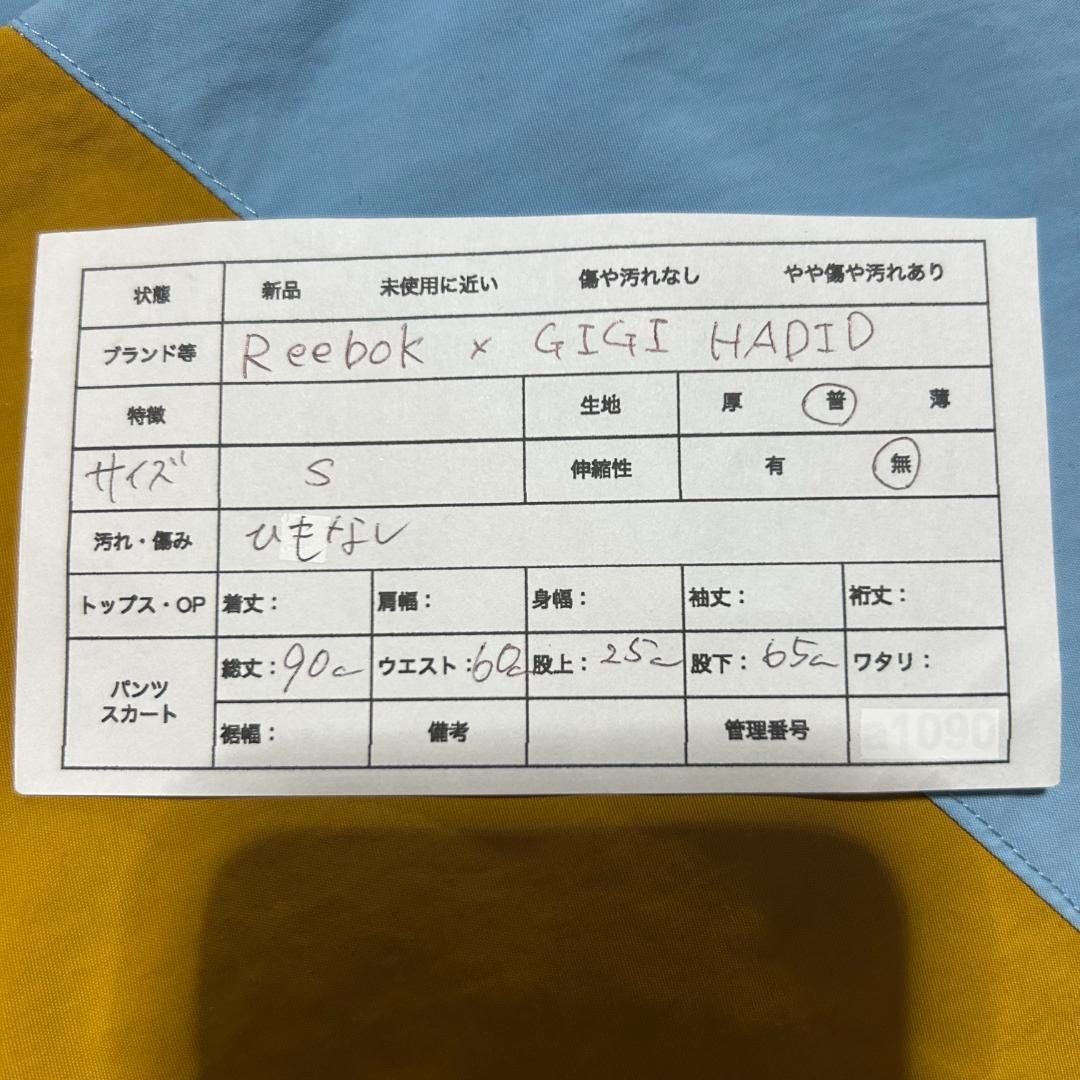 状態 新品 未使用に近い 傷や汚れなし やや傷や汚れあり
ブランド等 Reebok × GIGI HADID
特徴 生地 厚 普 薄
サイズ S 伸縮性 有 無
汚れ・傷み ひもなし
トップス・OP 着丈: 肩幅: 身幅: 袖丈: 裄丈:
パンツ スカート 総丈:90㎝ ウエスト:60㎝ 股上:25㎝ 股下:65㎝ ワタリ:
裾幅: 備考 管理番号